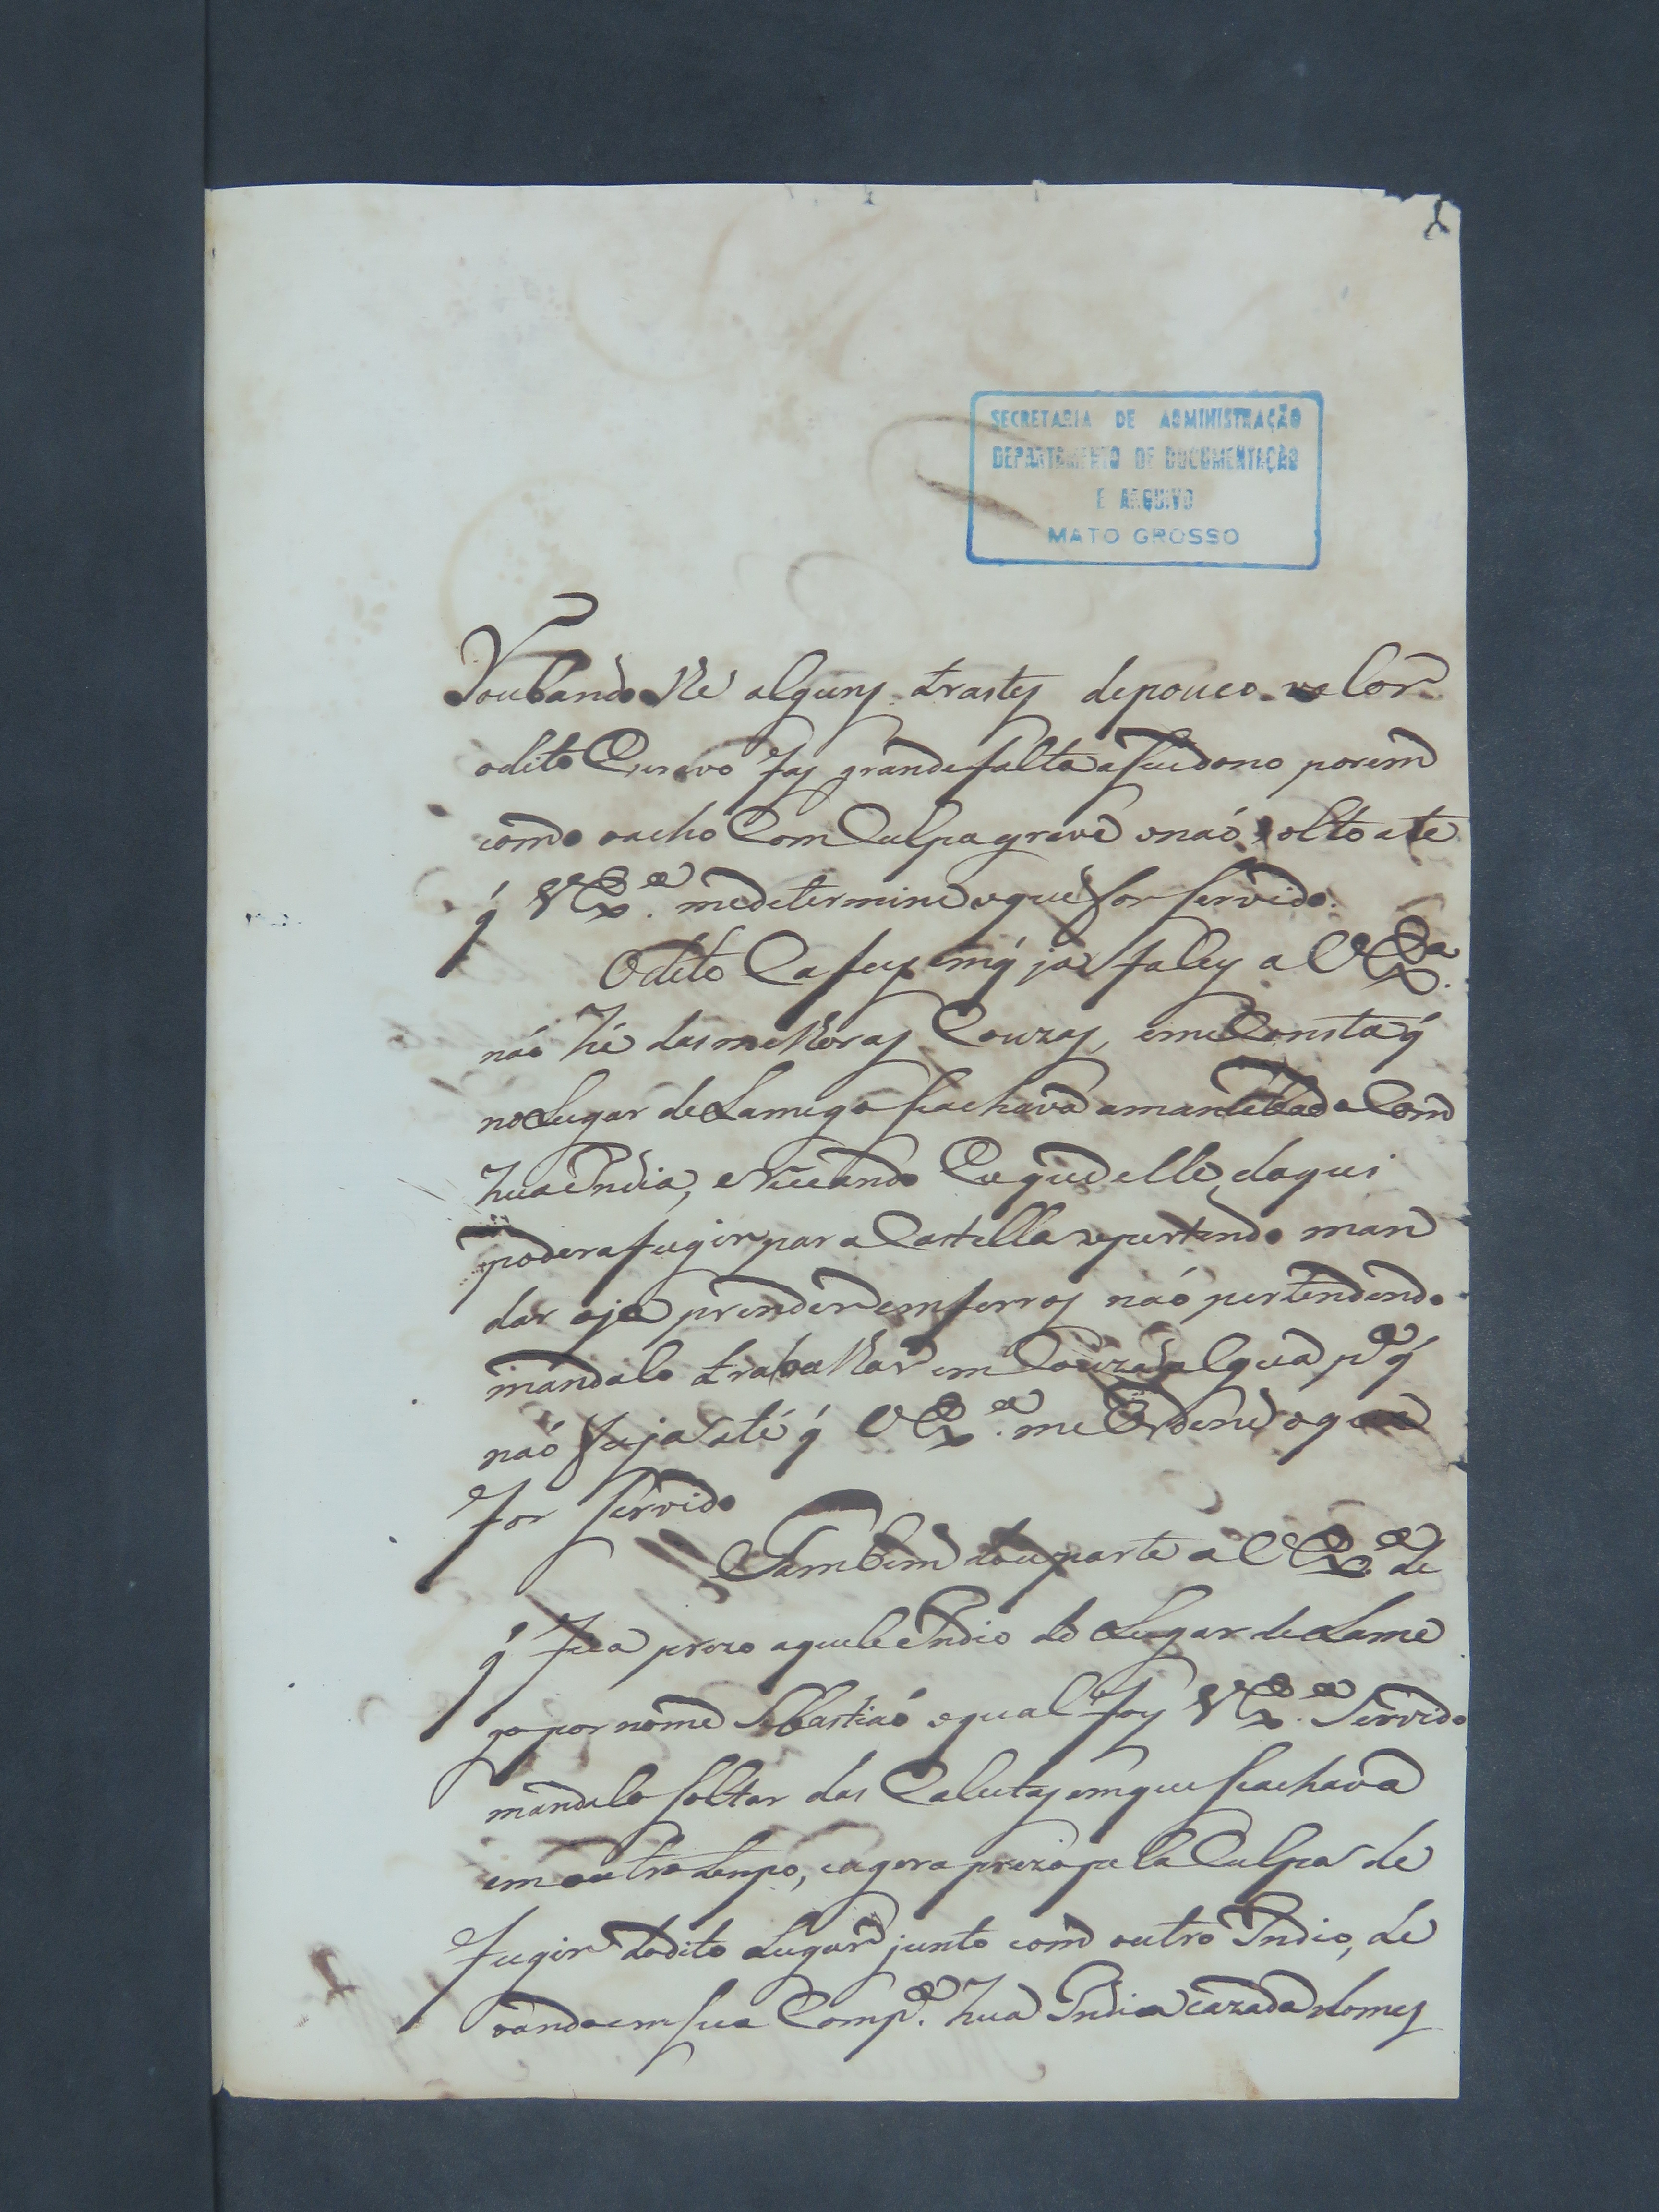 SECRETARIA DE ADMINISTRAÇÃO
DEPARTAMENTO DE DOCUMENTAÇÃO
E ARQUIVO
MATO GROSSO
Roubando lhe alguns trastes de pouco valor
o dito Escravo fas grande falta a seu dono porem
como o acho Com Culpa grave o naó solto ate
q̃ V Exª. me determine o que for servido.
O dito Cafuz em q̃ ja faley a V Exª.
naó hé das melhoras Couzas, e me Consta q̃
no Lugar de Lamego se achava amancebado Com
hua India, e receando Eu que elle daqui
podera fugir para Castella o pertendo man
dar oje prender em ferros naó pertendendo
mandalo trabalhar em Couza algua pª q̃
naó fuja até q̃ V Exª. me Ordene o que
for servido
Tambem dou parte a V Exª. de
q̃ fica prezo aquele Indio do Lugar de Lame
go por nome Sebastiaó o qual foy V Exª. Servido
mandalo soltar das Calcetas em que se achava
em outro tempo, e agora prezo pela Culpa de
fugir do dito Lugar junto com outro Indio, le
vando em sua Compª. hua India cazada do mes